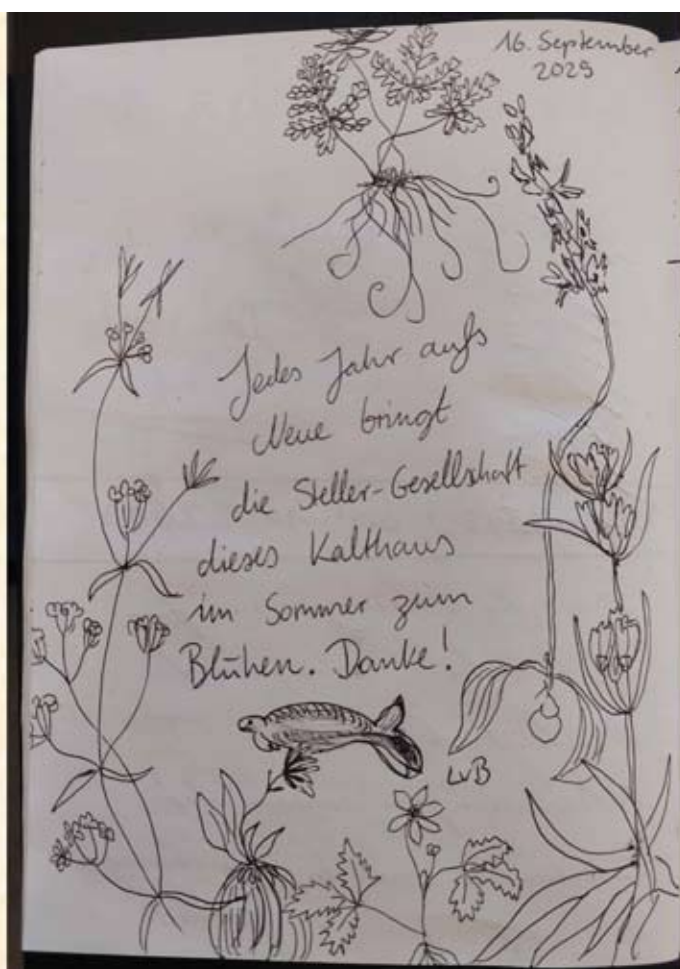 16. September
2025
Jedes Jahr aufs
Neue bringt
die Steller-Gesellschaft
dieses Kalthaus
im Sommer zum
Blühen. Danke!
LvB